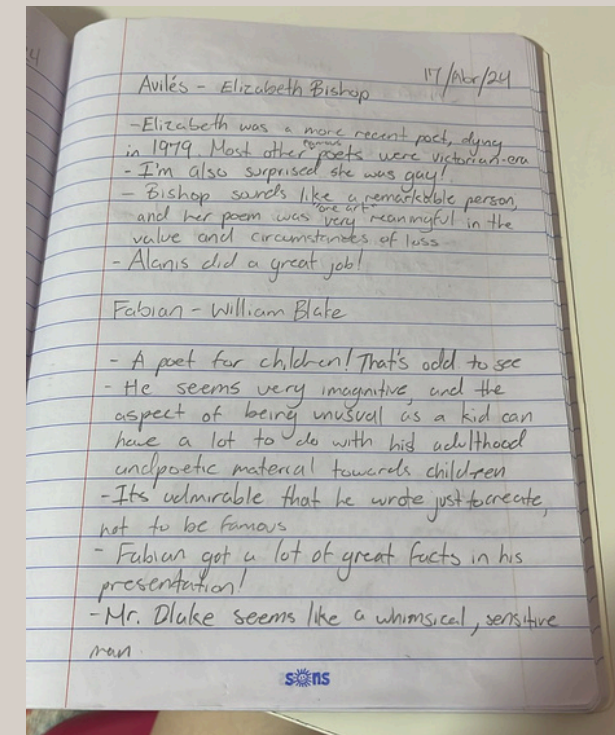 17/Abr/24
Avilés - Elizabeth Bishop
-Elizabeth was a more recent poet, dying
in 1979. Most other famous poets were victorian-era
- I'm also surprised she was gay!
- Bishop sounds like a remarkable person,
and her poem "one art" was very meaningful in the
value and circumstances of loss
- Alanis did a great job!
Fabian - William Blake
- A poet for children! That's odd to see
- He seems very imagnitive, and the
aspect of being unusual as a kid can
have a lot to do with his adulthood
and poetic material towards children
-Its admirable that he wrote just to create,
not to be famous
- Fabian got a lot of great facts in his
presentation!
-Mr. Blake seems like a whimsical, sensitive
man.
sons